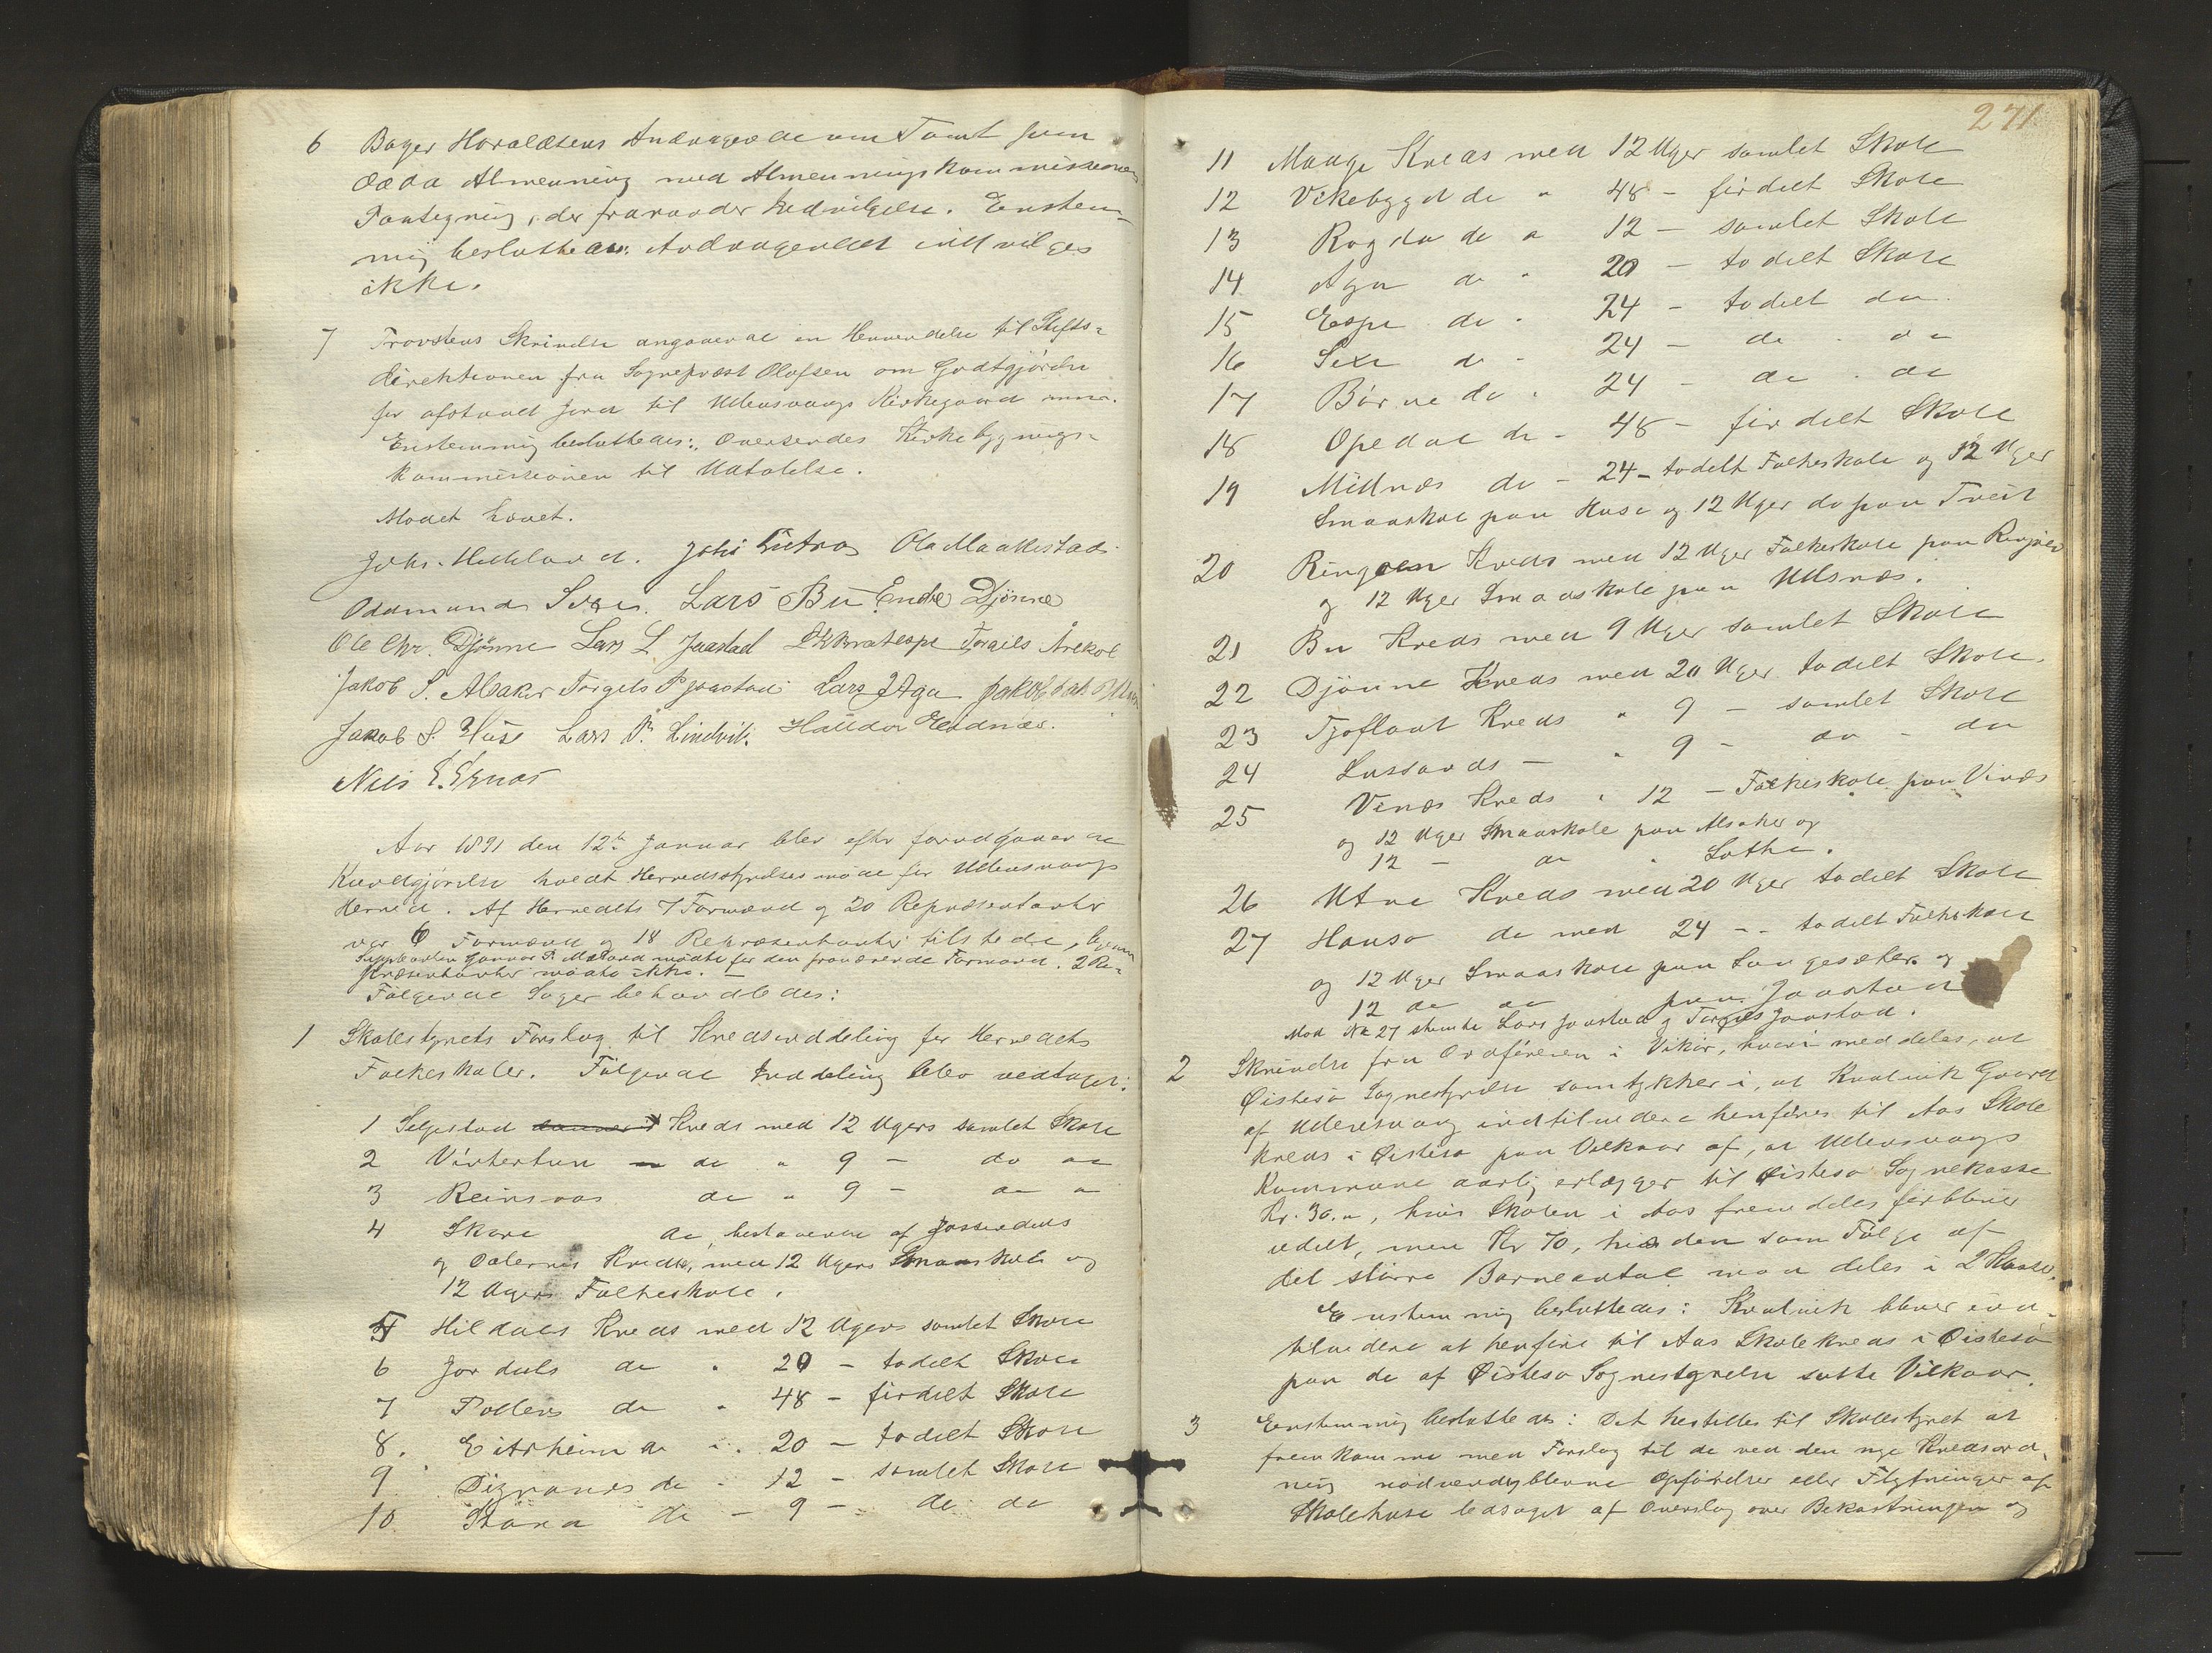 6 Bager Haraldsens Andragende om Tomt paa
Odda Almenning med Almenningskommissionens
Paategning, der fraraader Indvilgelse. Enstem-
mig besluttedes: Andragendet indvilges
ikke.
7 Provstens Skrivelse angaaende en Henvendelse til Stifts-
direktionen fra Sogneprest Olafsen om Godtgjørelse
for afstaaet Jord til Ullensvangs Kirkegaard
Enstemmig besluttedes: Oversendes Kirkebygnings-
kommissionen til Udtalelse.
Mødet hævet.
Johs. Helleland. Johs Eitnes Ola Maakestad
Oddmund Sexe. Lars Bu Endre Djønne
Ole Chr. Djønne Lars L Jaastad Torgils Årekol
Jakob S. Alsaker Torgels P Jaastad Lars J Aga Jakob
Jakob S. Huse Lars P. Lindvik. Halldor Eidnæs.
Nils E. Ernes
Aar 1891 den 12te Januar blev efter forudgaaende
Kundgjørelse holdt Herredsstyrelsesmøde for Ullensvangs
Herred. Af Herredets 7 Formænd og 20 Repræsentanter
var 6 Formænd og 18 Repræsentanter tilstede, ligesom
Suppleanten Gunnar P. Mæland mødte for den fraværende Formand. 2 Re-
præsentanter mødte ikke. –
Følgende Sager behandledes:
1 Skolestyrets Forslag til Kredsinddeling for Herredets
Folkeskoler. Følgende Inddeling blev vedtaget:
1 Seljestad Kreds med 12 Ugers samlet Skole
2 Vintertun do " 9 – do do
3 Reinsnos do " 9 – do do
4 Skare do, bestaaende af Jøsendals
og Dalernes Kredse, med 12 Ugers Smaaskole og
12 Ugers Folkeskole.
5 Hildals Kreds med 12 Ugers samlet Skole
6 Jordals do " 20 – todelt Skole
7 Tollevs do " 48 – firdelt Skole
8. Eitrheim do " 20 – todelt Skole
9 Digranes do – 12 – samlet Skole
10 Stana do – 9 – do do
271
11 Mauge Kreds med 12 Uger samlet Skole
12 Vikebygd do " 48 – firdelt Skole
13 Ragda do " 12 – samlet Skole
14 Aga do " 20 – todelt Skole
15 Espe do " 24 – todelt do
16 Sexe do " 24 – do do
17 Børve do " 24 – do do
18 Opedal do – 48 – firdelt Skole
19 Midnæs do – 24 – todelt Folkeskole og 12 Uger
Smaaskole paa Huse og 12 Uger do paa Tveit
20 Ringøen Kreds med 12 Uger Folkeskole paa Ringøen
og 12 Uger Smaaskole paa Ulsnæs.
21 Bu Kreds med 9 Uger samlet Skole
22 Djønne Kreds med 20 Uger todelt Skole.
23 Tjoflaat Kreds " 9 – samlet Skole
24 Lussands – " 9 – do – do
25 Vinæs Kreds " 12 – Folkeskole paa Vinæs
og 12 Uger Smaaskole paa Alsaker og
12 – do " Lothe.
26 Utne Kreds med 20 Uger todelt Skole
27 Hauso do med 24 – todelt Folkeskole
og 12 Uger Smaaskole paa Langesæter og
12 do do paa Jaastad
Mod No 27 stemte Lars Jaastad og Torgils Jaastad.
2 Skrivelse fra Ordføreren i Vikør, hvori meddeles, at
Øistesø Sognestyrelse samtykker i, at Kvalvik Gaard
af Ullensvang indtilvidere henføres til Aas Skole
kreds i Øistesø paa Vilkaar af, at Ullensvangs
Kommune aarlig erlægger til Øistesø Sognekasse
Kr. 30.", hvis Skolen i Aas fremdeles forbliver
udelt, men Kr 70, hvis den som Følge af
det større Barneantal maa deles i 2 Klasser.
Enstemmig besluttedes: Kvalvik bliver ind-
tilvidere at henføre til Aas Skolekreds i Øistesø
paa de af Øistesø Sognestyrelse satte Vilkaar.
3 Enstemmig besluttedes: Det henstilles til Skolestyret at
fremkomme med Forslag til de ved den nye Kredsord-
ning nødvendigblevne Opførelser eller Flytninger af
Skolehuse ledsaget af Overslag over Bekostningen og